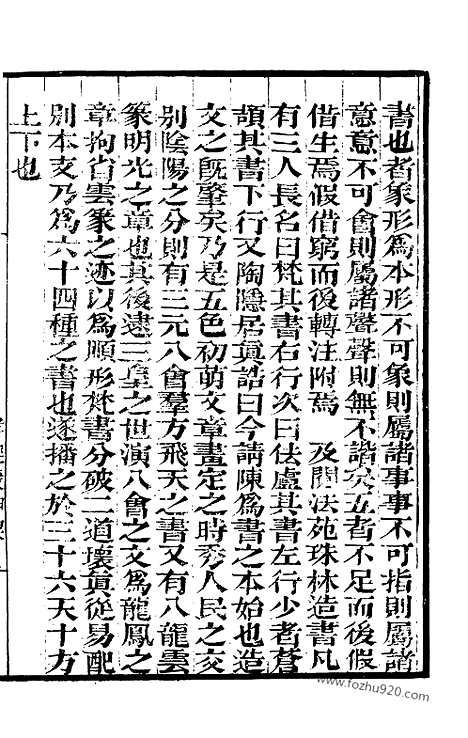 書也者象形爲本形不可象則屬諸事事不可指則屬諸
意意不可會則屬諸聲聲則無不諧矣五者不足而後假
借生焉假借窮而後轉注附焉　及閱法苑珠林造書凡
有三人長名曰梵其書右行次曰佉盧其書左行少者蒼
頡其書下行又陶隱居眞誥曰今請陳爲書之本始也造
文之旣肇矣乃是五色初萌文章畫定之時秀人民之交
別陰陽之分則有三元八會羣方飛天之書又有八龍雲
篆明光之章也其後逮二皇之世演八會之文爲龍鳳之
章拘省雲篆之迹以爲順形梵書分破二道壞眞從易配
別本支乃爲六十四種之書也遂播之於三十六天十方
上下也
www.fozhu920.com